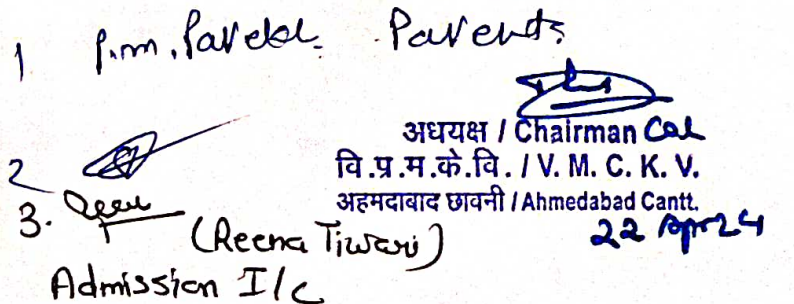 1 P.m. Parekh. Parents
अधयक्ष / Chairman Col
वि.प्र.म.के.वि. / V. M. C. K. V.
अहमदाबाद छावनी / Ahmedabad Cantt.
22 Apr 24
2
3.
(Reena Tiwari)
Admission I/c